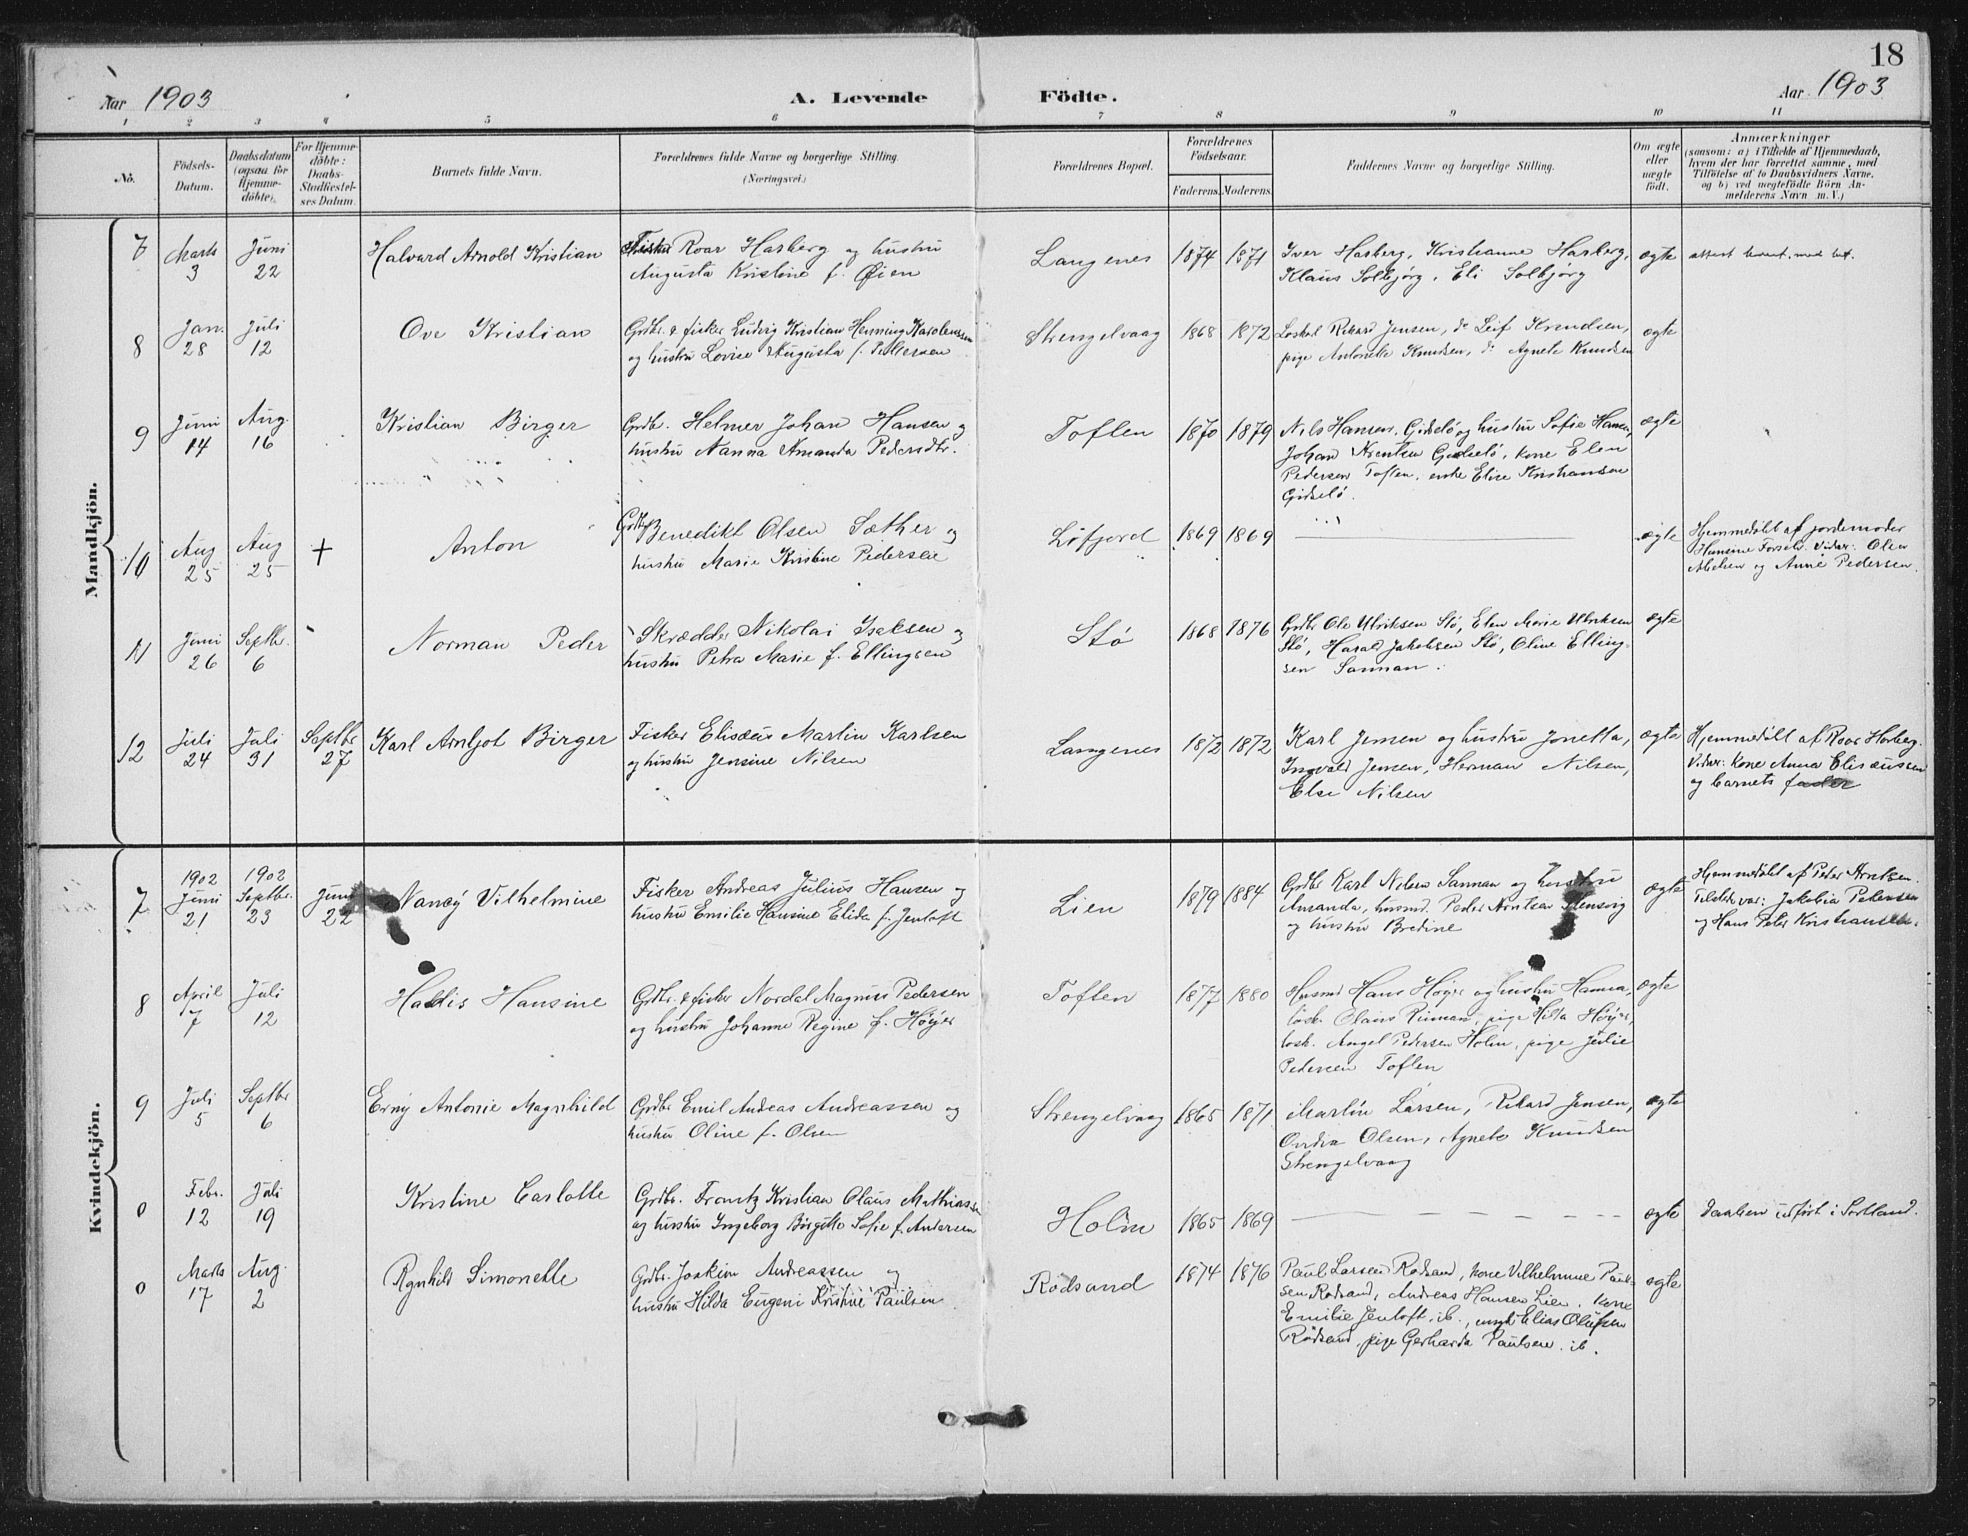 18
Aar 1903
A. Levende Födte.
Aar 1903
1 2 3 4 5 6 7 8 9 10 11
No.
Födsels-Datum.
Daabsdatum (ogsaa for Hjemme-döbte).
For Hjemme-döbte: Daabs-Stadfæstel-ses Datum.
Barnets fulde Navn.
Forældrenes fulde Navne og borgerlige Stilling. (Næringsvei.)
Forældrenes Bopæl.
Forældrenes Födselsaar.
Faderens. Moderens.
Faddernes Navne og borgerlige Stilling.
Om ægte eller uægte födt.
Anmærkninger
(saasom: a) i Tilfælde af Hjemmedaab, hvem der har forrettet samme, med Tilföielse af to Daabsvidners Navne, og b) ved uægtefödte Börn An-melderens Navn m. V.)
Mandkjön.
7 Marts 3 Juni 22 Halvard Arnold Kristian
Fisker Roar Hasberg og hustru
Augusta Kristine f. Øien
Langenes 1874 1871
Iver Hasberg, Kristianne Hasberg,
Klaus Solbjørg, Eli Solbjørg
ægte
8 Jan. 28 Juli 12 Ove Kristian
Grdbr. & fisker Ludvig Kristian Henning Karolussen
og hustru Lovise Augusta f. Pettersen
Strengelvaag 1868 1872
Løskal Rikard Jensen, do Leif Knudsen,
pige Antonette Knudsen, do Agnete Knudsen
ægte
9 Juni 14 Aug. 16 Kristian Birger
Grdbr. Helmer Johan Hansen og
hustru Nanna Amanda Pedersdtr.
Toften 1870 1879
Nils Hansen, Gidselø og hustru Sofie Hansen,
Johan Arentsen Gidselø, kone Elen
Pedersen Toften, enke Elise Kristiansen
Gidselø.
ægte
10 Aug 25 Aug 25 + Anton
Grdbr Benedikt Olsen Sæther og
hustru Marie Kristine Pedersen
Løfjord 1869 1869
ægte
Hjemmedøbt af jordemoder
Hansine Vidner: Olea
og Anne Pedersen.
11 Juni 26 Septbr. 6 Norman Peder
Skrædder Nikolai Isaksen og
hustru Petra Marie f. Ellingsen
Stø 1868 1876
Grdbr Ole Ulriksen Stø, Elen Marie Ulriksen
Stø, Harald Jakobsen Stø, Oline Elling-
sen Sannan.
ægte
12 Juli 24 Juli 31 Septbr 27 Karl Arntjot Birger
Fisker Elisæus Martin Karlsen
og hustru Jensine Nilsen
Langenes 1872 1872
Karl Jensen og hustru Jonetta,
Ingvald Jensen, Herman Nilsen,
Else Nilsen
ægte
Hjemmedøbt af Roar Hasberg.
Vidner: kone Anna Elisæussen
og barnets fader
Kvindekjön.
7 1902 Juni 21 1902 Septbr. 23 Juni 22 Nancy Vilhelmine
Fisker Andreas Julius Hansen og
hustru Emilie Hansine Elida f. Jentoft
Lien 1879 1884
Grdbr Karl Nilsen Sannan og hustru
Amanda, husmd. Peder Arntsen
og hustru Bredine
ægte
Hjemmedøbt af Peter Arntsen.
Tilstede var: Jakobia Petersen
og Hans Peter Kristiansen.
8 April 7 Juli 12 Haldis Hansine
Grdbr. & fisker Nordal Magnus Pedersen
og hustru Johanne Regine f. Høyer
Toften 1877 1880
Husmd Hans Høyer og hustru Hanna,
løsk. Olaus Riman, pige Hilda Høyer,
løsk. Angel Pedersen Holm, pige Julie
Pedersen Toften
ægte
9 Juli 5 Septbr 6 Erny Antonie Magnhild
Grdbr Emil Andreas Andreassen og
hustru Oline f. Olsen
Strengelvaag 1865 1871
Martin Larsen, Rikard Jensen,
Ovidia Olsen, Agnete Knudsen
Strengelvaag
ægte
0 Febr. 12 Juli 19 Kristine Carlotte
Grdbr. Frantz Kristian Olaus Mathiassen
og hustru Ingeborg Birgitte Sofie f. Andersen
Holm 1865 1869
ægte
Daaben udført i Sortland.
0 Marts 17 Aug. 2 Rgnhild Simonette
Grdbr. Joakim Andreassen og
hustru Hilda Eugeni Kristine Paulsen
Rødsand 1874 1876
Paul Larsen Rødsand, kone Vilhelmine Paul-
sen Rødsand, Andreas Hansen Lien, kone
Emilie Jentoft, ib., ungk. Elias Olufsen
Rødsand, pige Gerharda Paulsen ib.
ægte